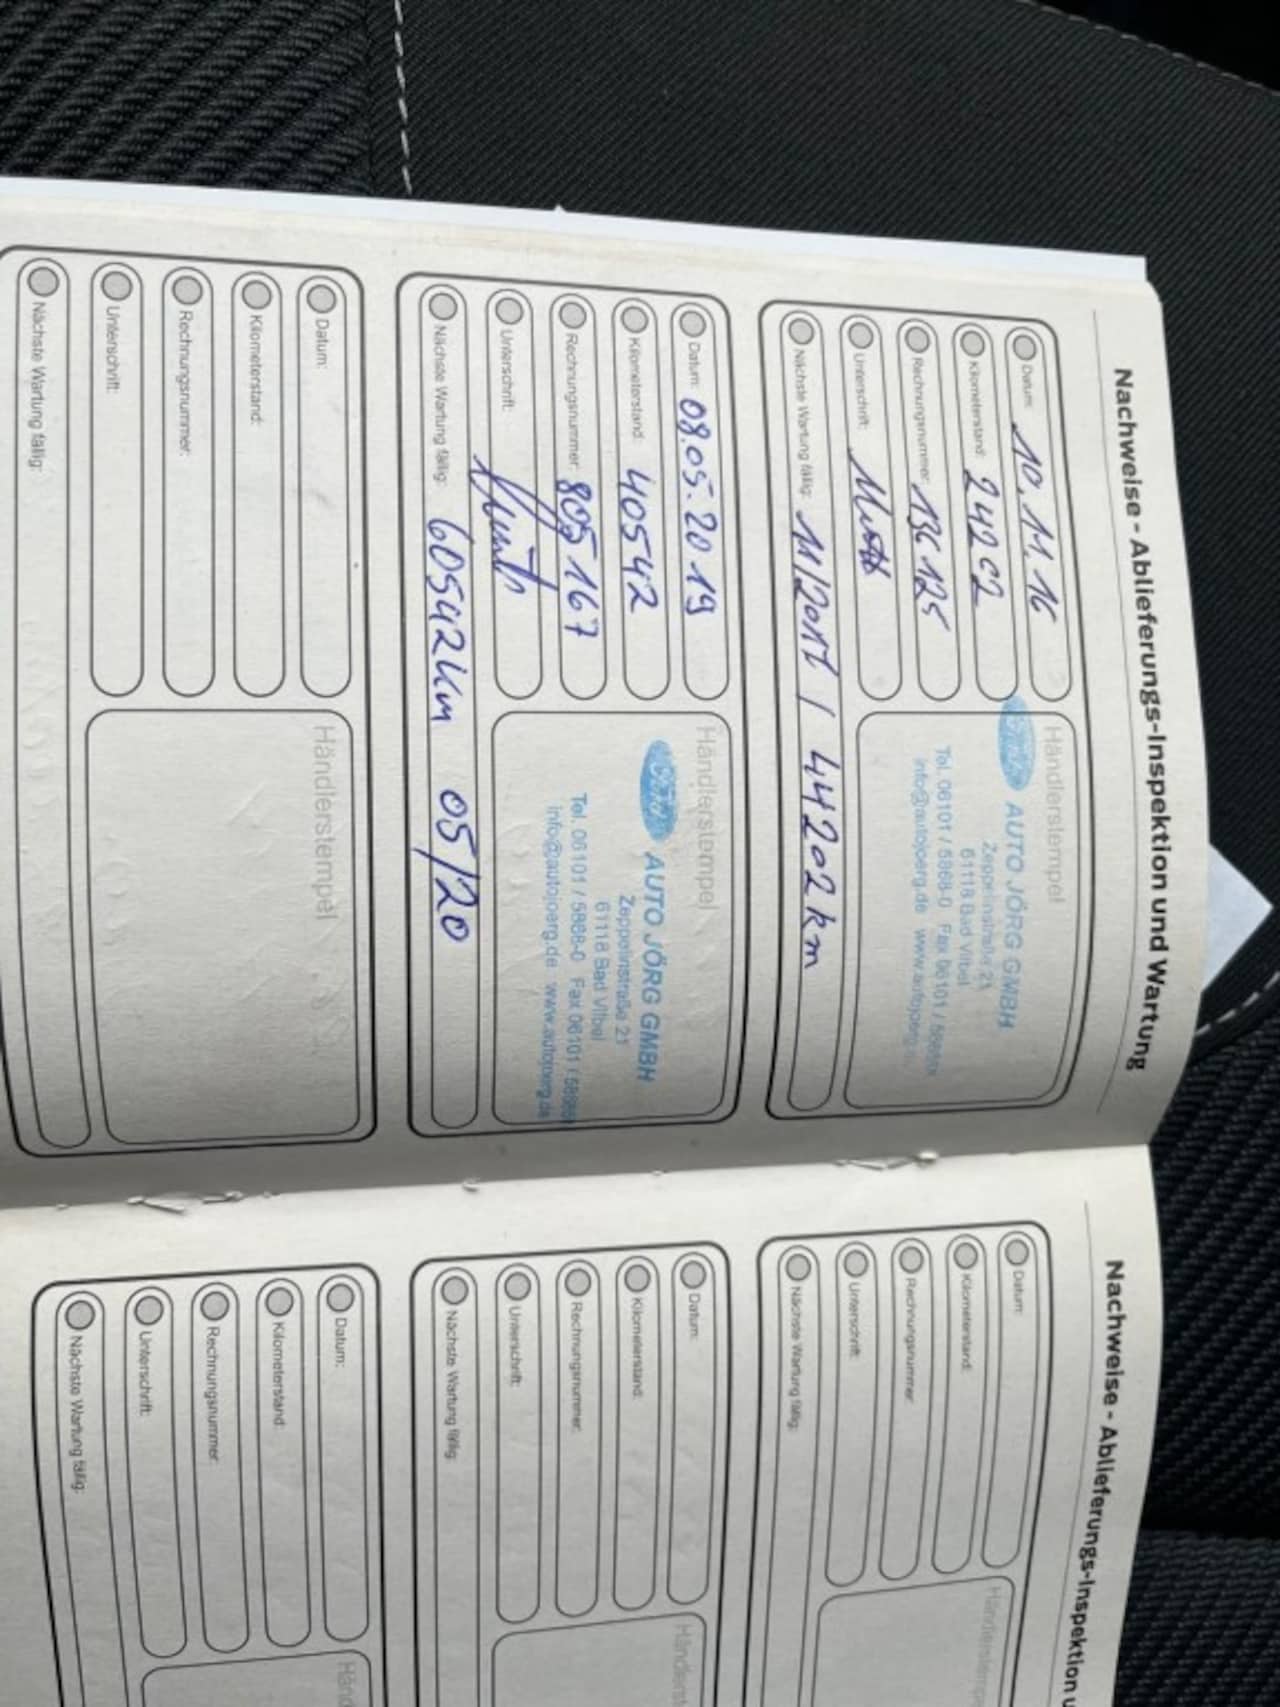 Nachweise - Ablieferungs-Inspektion und Wartung
Datum: 10.11.16
Kilometerstand: 24202
Rechnungsnummer: 136125
Unterschrift:
Händlerstempel
AUTO JÖRG GMBH
Zeppelinstraße 21
61118 Bad Vilbel
Tel. 06101 / 5868-0 Fax 06101 /
info@autojoerg.de
Nächste Wartung fällig: 11/2017 / 44202km
Datum: 08.05.2019
Kilometerstand: 40542
Rechnungsnummer: 805167
Unterschrift:
Händlerstempel
AUTO JÖRG GMBH
Zeppelinstraße 21
61118 Bad Vilbel
Tel. 06101 / 5868-0 Fax 06101 /
info@autojoerg.de www.autojoerg.de
Nächste Wartung fällig: 60542km 05/20
Datum:
Kilometerstand:
Rechnungsnummer:
Unterschrift:
Händlerstempel
Nächste Wartung fällig:
Nachweise - Ablieferungs-Inspektion u
Datum:
Kilometerstand:
Rechnungsnummer:
Unterschrift:
Händlerstempe
Nächste Wartung fällig:
Datum:
Kilometerstand:
Rechnungsnummer:
Unterschrift:
Händlerst
Nächste Wartung fällig:
Datum:
Kilometerstand:
Rechnungsnummer:
Unterschrift:
Händ
Nächste Wartung fällig: